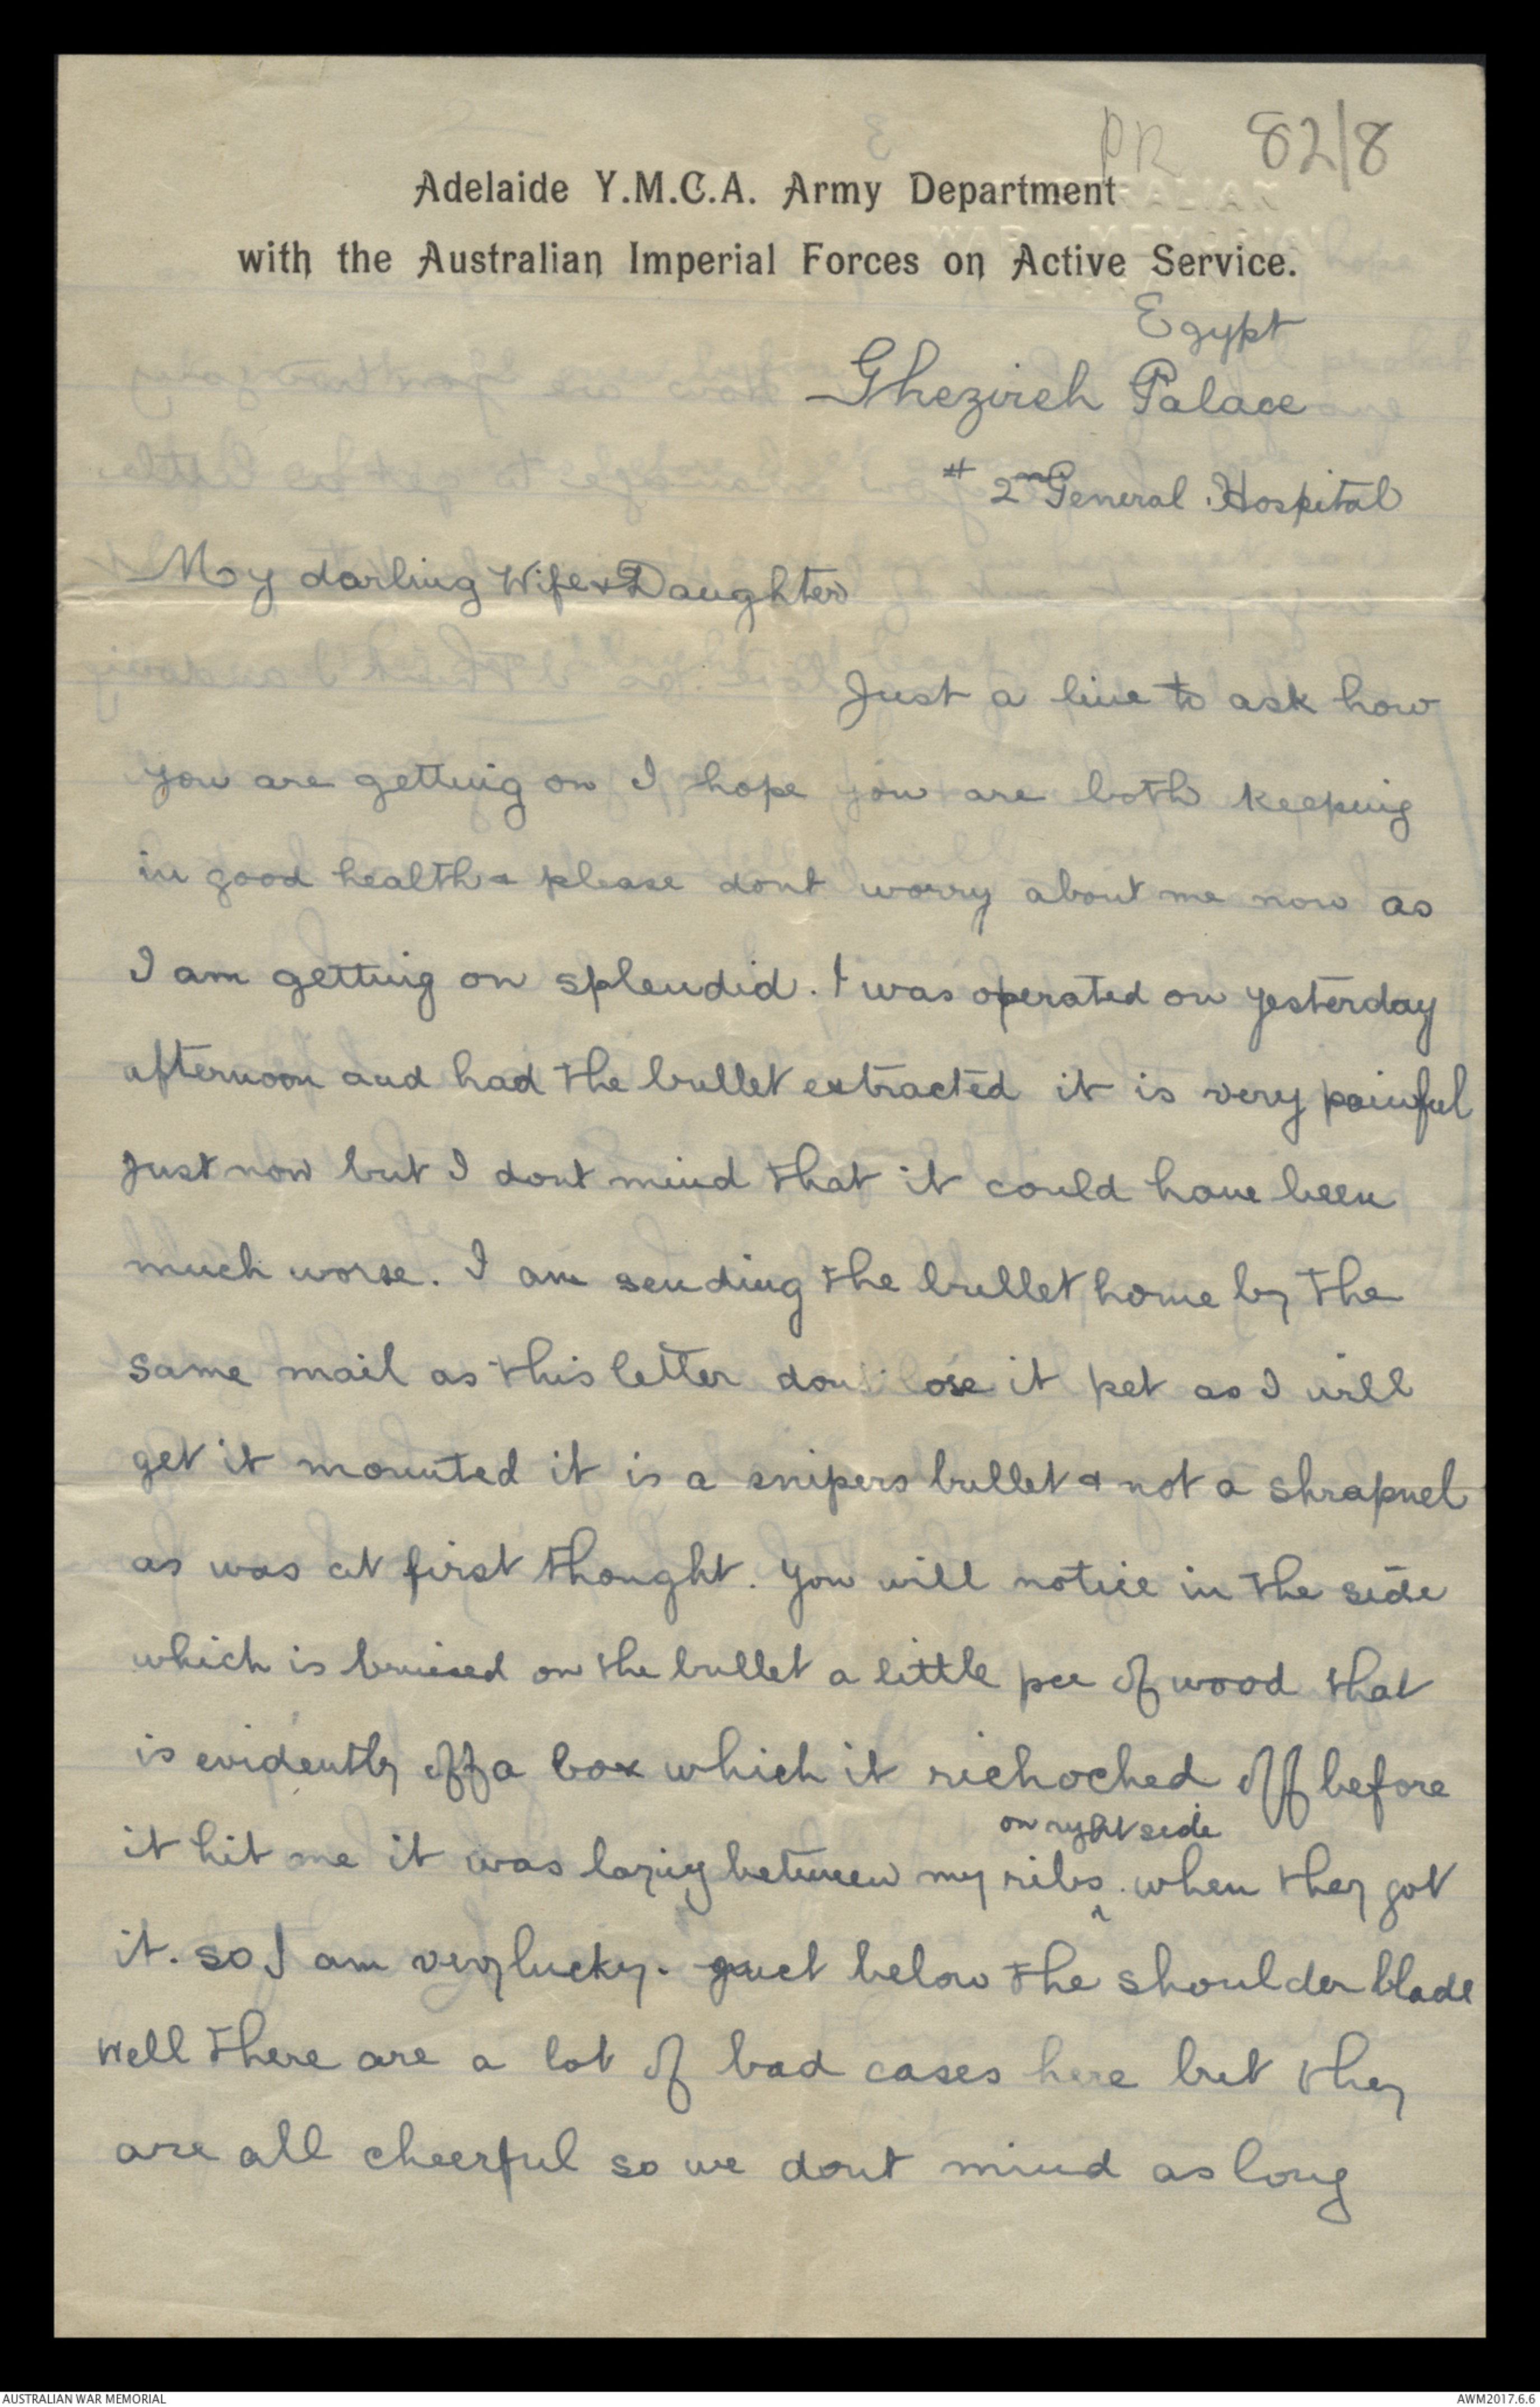 PR 82/8
Adelaide Y.M.C.A. Army Department
with the Australian Imperial Forces on Active Service.
Egypt
Ghezireh Palace
# 2nd General Hospital
My darling Wife & Daughter
Just a line to ask how
you are getting on I hope you are both keeping
in good health & please dont worry about me now as
I am getting on splendid. I was operated on yesterday
afternoon and had the bullet extracted it is very painful
just now but I dont mind that it could have been
much worse. I am sending the bullet home by the
same mail as this letter dont lose it pet as I will
get it mounted it is a snipers bullet & not a shrapnel
as was at first thought. You will notice in the side
which is bruised on the bullet a little pce of wood that
is evidently off a box which it richoched off before
on right side
it hit me it was laying between my ribs ^ when they got
it. so I am very lucky. just below the shoulder blade
Well there are a lot of bad cases here but they
are all cheerful so we dont mind as long
AUSTRALIAN WAR MEMORIAL
AWM2017.6.6